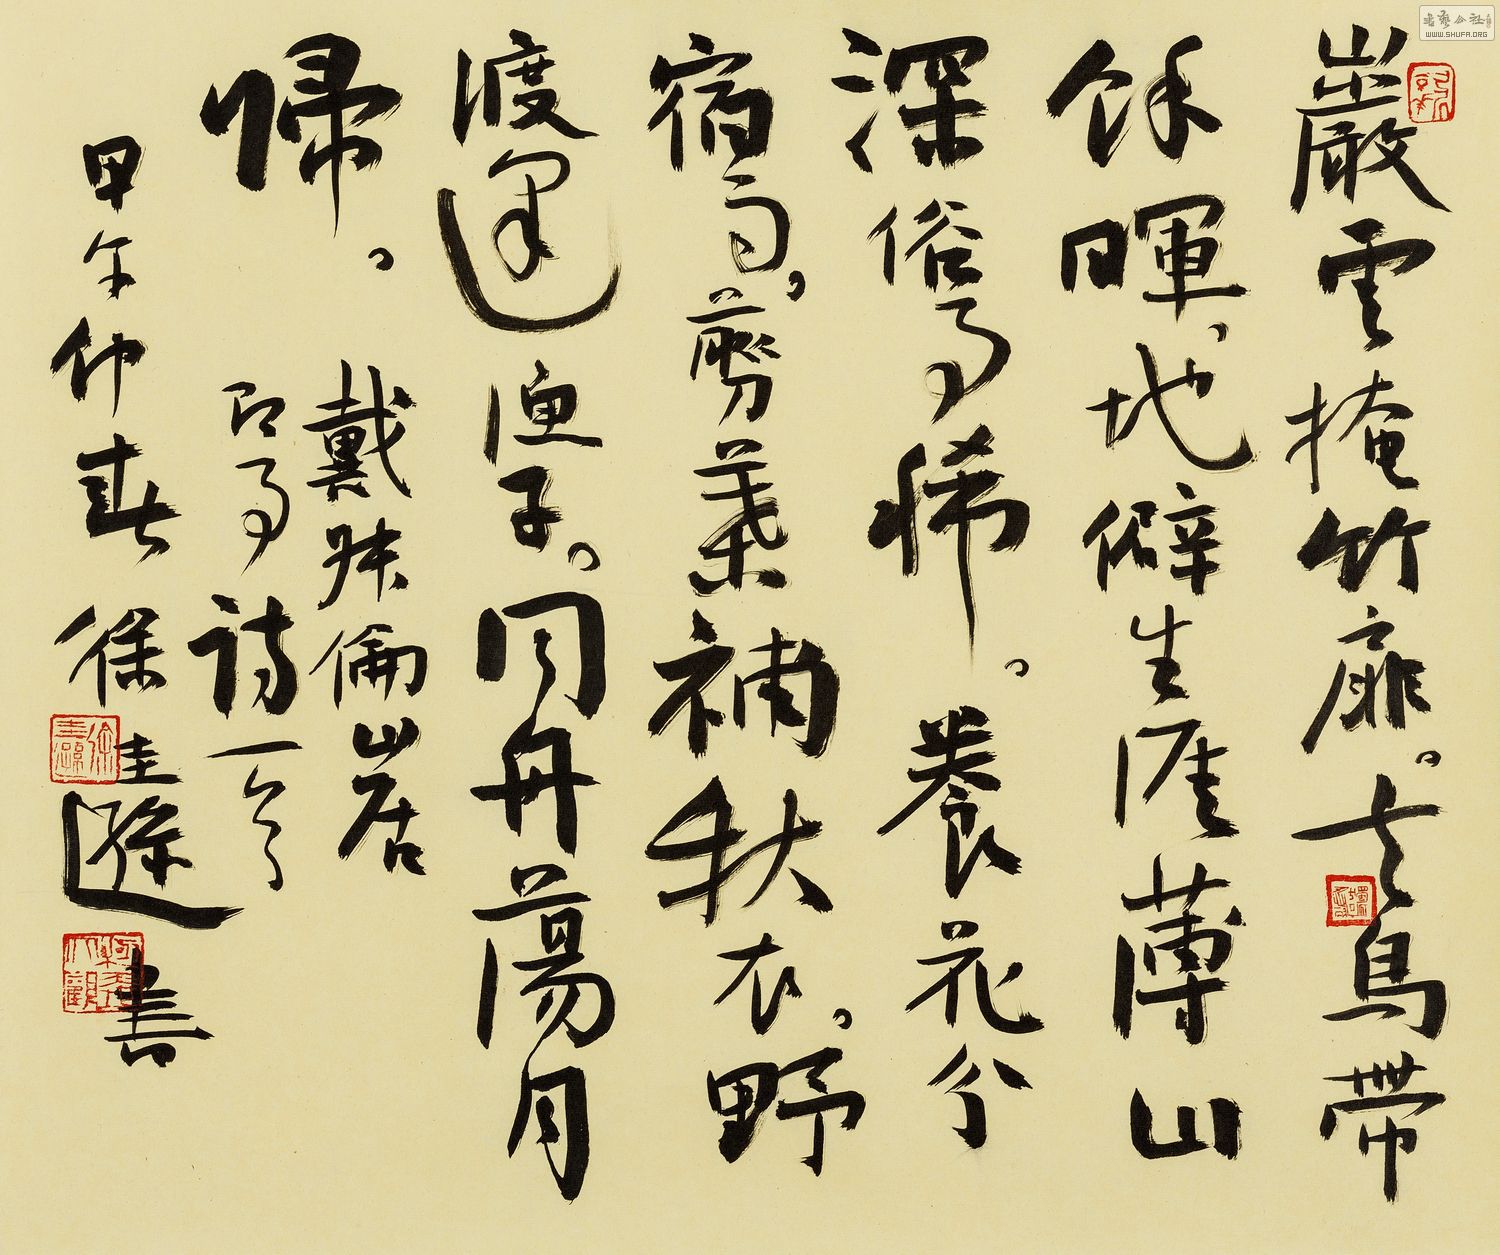 巖雲掩竹扉。去鳥帶
餘暉，地僻生涯薄山
深俗事稀。養花分
宿雨，剪葉補秋衣。野
渡逢漁子。同舟蕩月
歸。
戴叔倫山居
即事詩一首
甲午仲春徐圭遜書
WWW.SHUFA.ORG